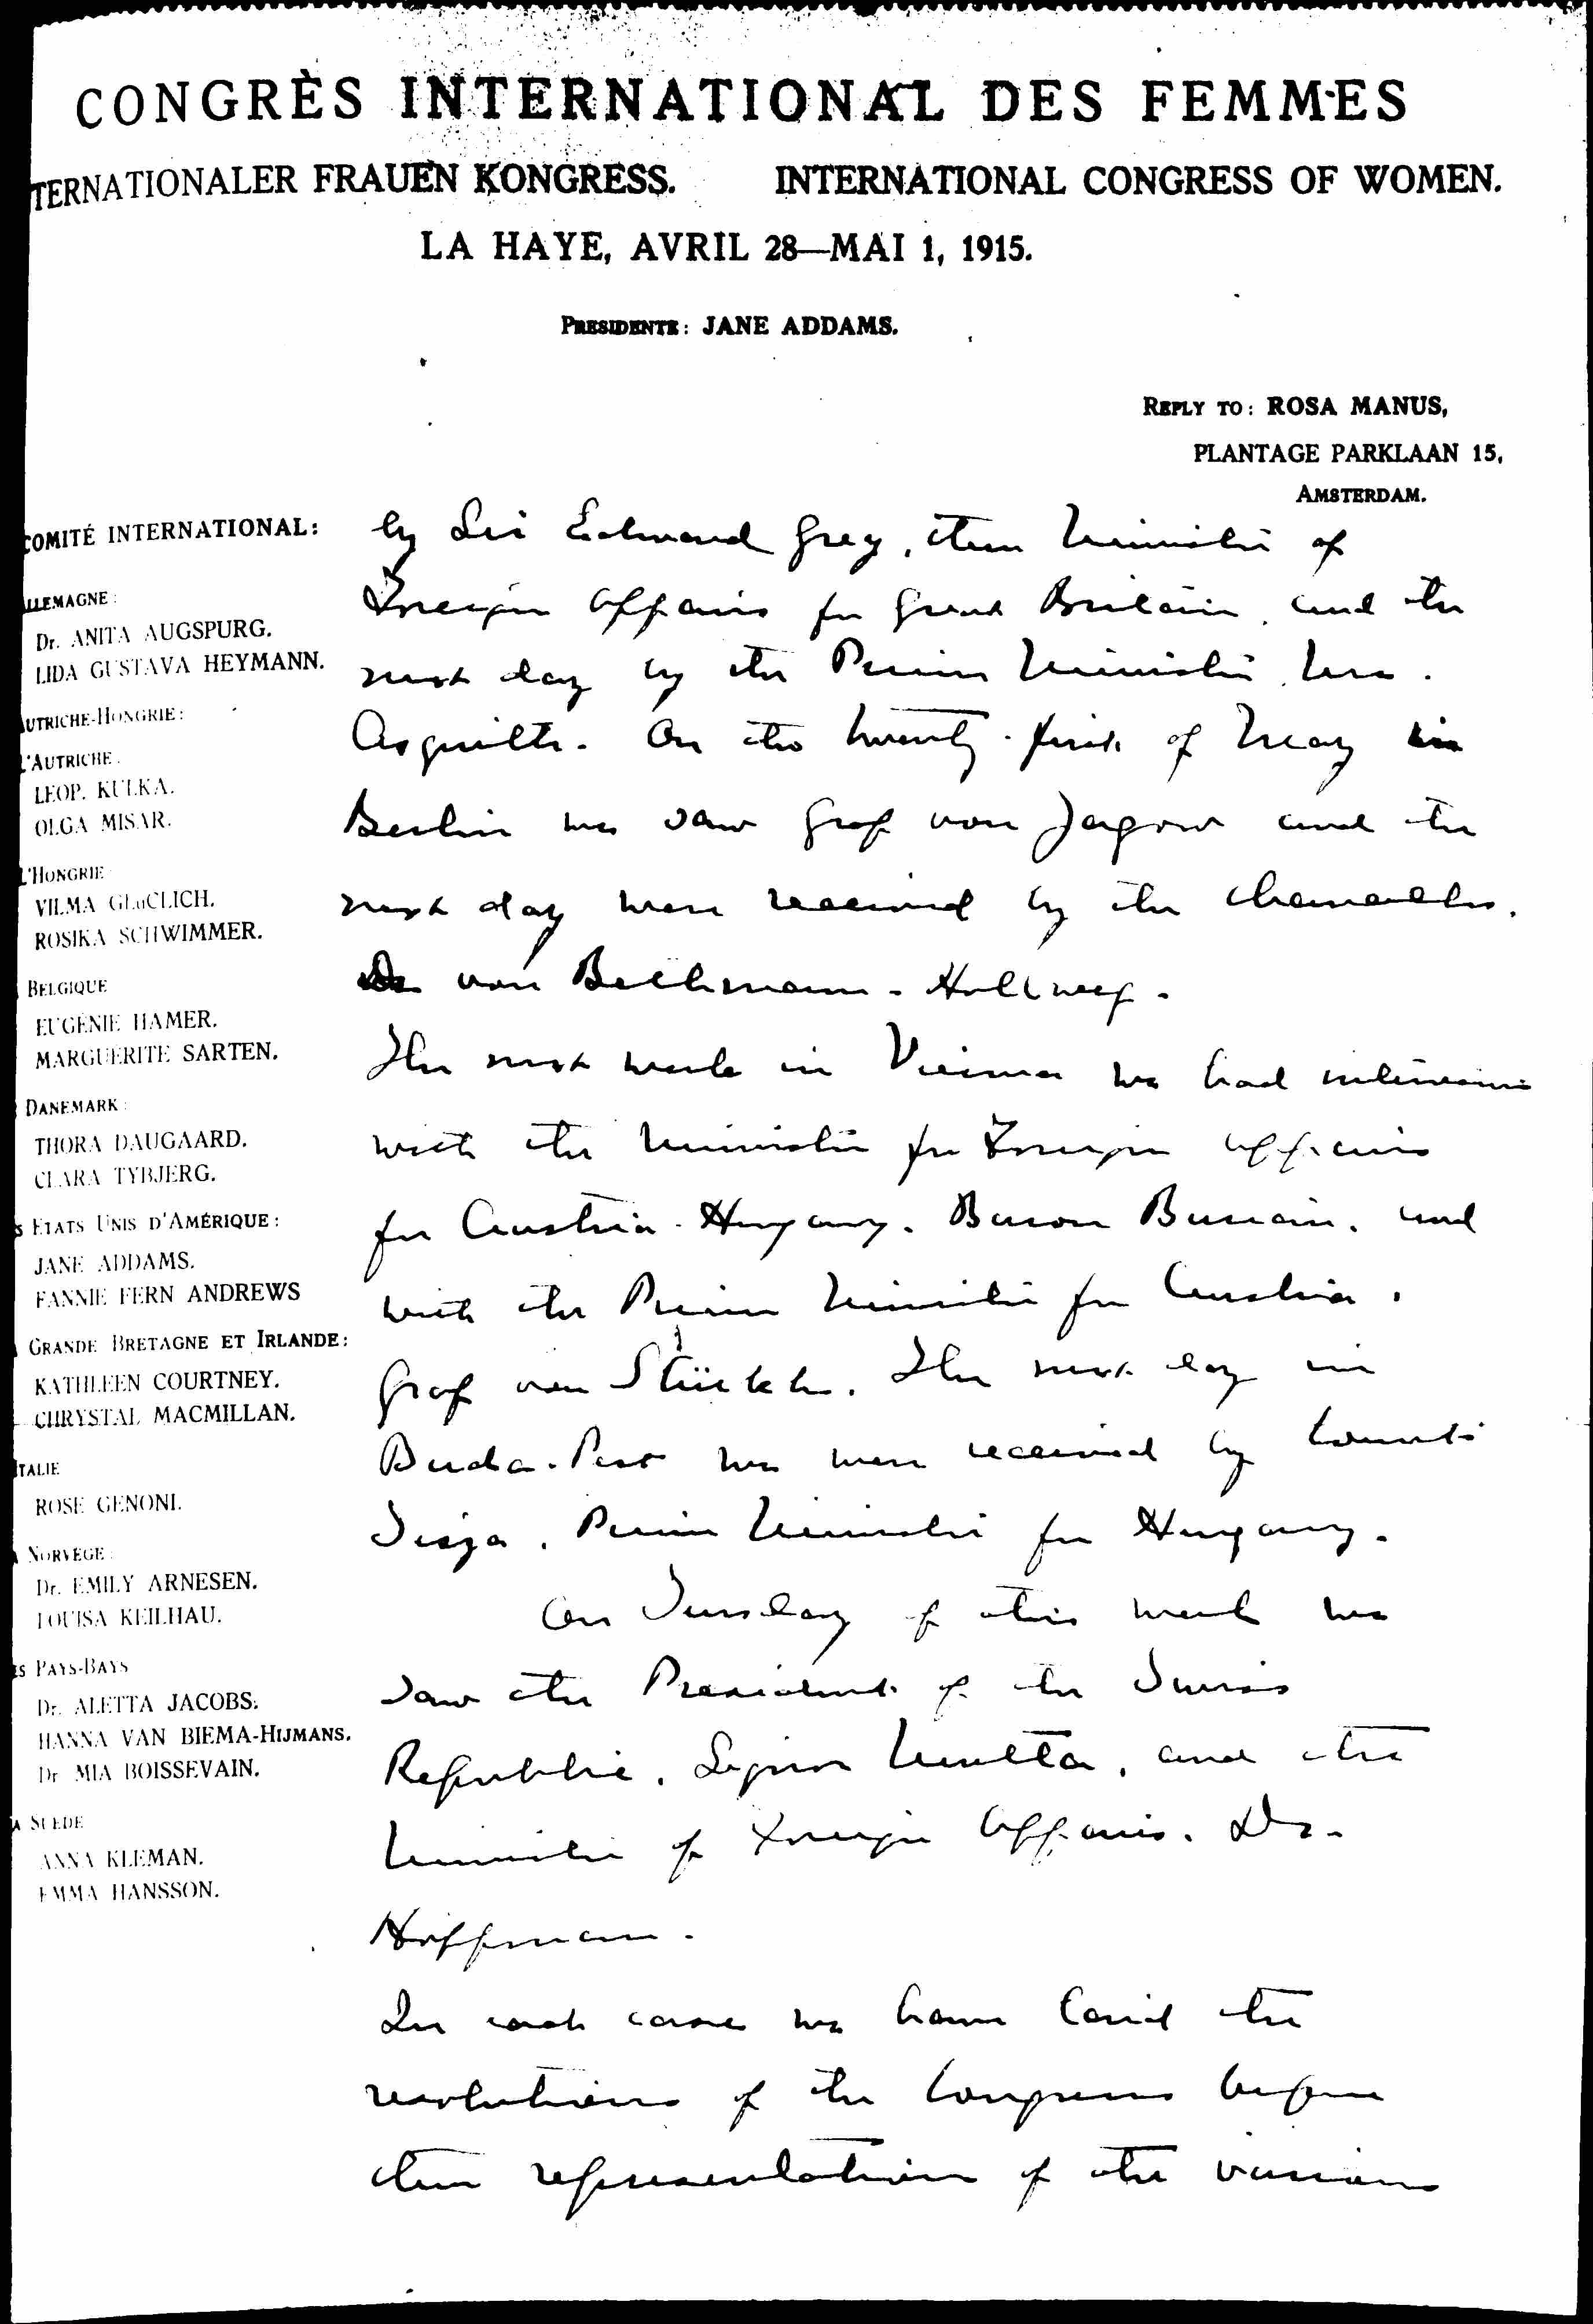 CONGRÈS INTERNATIONAL DES FEMMES
TERNATIONALER FRAUEN KONGRESS. INTERNATIONAL CONGRESS OF WOMEN.
LA HAYE, AVRIL 28—MAI 1, 1915.
PRESIDENTE: JANE ADDAMS.
REPLY TO: ROSA MANUS,
PLANTAGE PARKLAAN 15,
AMSTERDAM.
COMITÉ INTERNATIONAL:
ALLEMAGNE:
Dr. ANITA AUGSPURG.
LIDA GUSTAVA HEYMANN.
AUTRICHE-HONGRIE:
L'AUTRICHE.
LEOP. KULKA.
OLGA MISAR.
L'HONGRIE
VILMA GLüCLICH.
ROSIKA SCHWIMMER.
BELGIQUE
EUGÉNIE HAMER.
MARGUERITE SARTEN.
DANEMARK:
THORA DAUGAARD.
CLARA TYBJERG.
S ETATS UNIS D'AMÉRIQUE:
JANE ADDAMS.
FANNIE FERN ANDREWS
GRANDE BRETAGNE ET IRLANDE:
KATHLEEN COURTNEY.
CHRYSTAL MACMILLAN.
ITALIE
ROSE GENONI.
A NORVÈGE:
Dr. EMILY ARNESEN.
LOUISA KEILHAU.
ES PAYS-BAYS
Dr. ALETTA JACOBS.
HANNA VAN BIEMA-HIJMANS.
Dr MIA BOISSEVAIN.
A SUEDE
ANNA KLEMAN.
EMMA HANSSON.
by Sir Edward Grey, the Minister of
Foreign Affairs for Great Britain, and the
next day by the Prime Minister, Mr.
Asquith. On the twenty-first of May in
Berlin we saw Graf von Jagow and the
next day were received by the chancellor,
von Bethmann-Hollweg.
The next week in Vienna we had interviews
with the Minister for Foreign affairs
for Austria-Hungary, Baron Burian, and
with the Prime Minister for Austria,
Graf von Stürkh. The next day in
Buda-Pest we were received by Count
Tisza, Prime Minister for Hungary.
On Tuesday of this week we
saw the President of the Swiss
Republic, Signor Motta, and the
Minister of Foreign Affairs, Dr.
Hoffman.
In each case we have laid the
resolutions of the Congress before
these representatives of the various